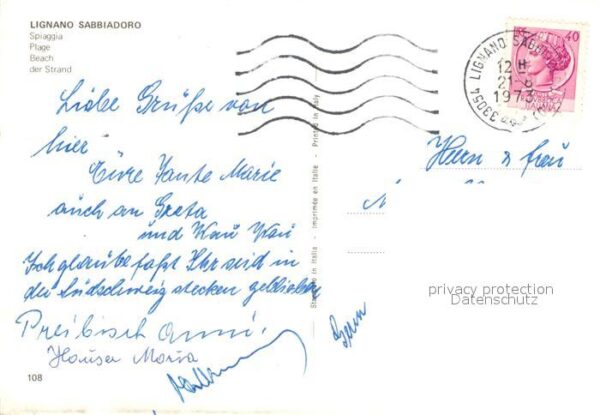 LIGNANO SABBIADORO
Spiaggia
Plage
Beach
der Strand
Liebe Grüße von
hier
Eure Tante Marie
auch an Greta
und Wau Wau
Ich glaube fast Ihr seid in
der Südschweiz stecken geblieben
Preibisch Anni.
Hauser Maria
108
Stampato in Italia - Imprimée en Italie - Printed in Italy
40
33054 LIGNANO SABB
12 H
21
1973
Herrn & Frau
privacy protection
Datenschutz